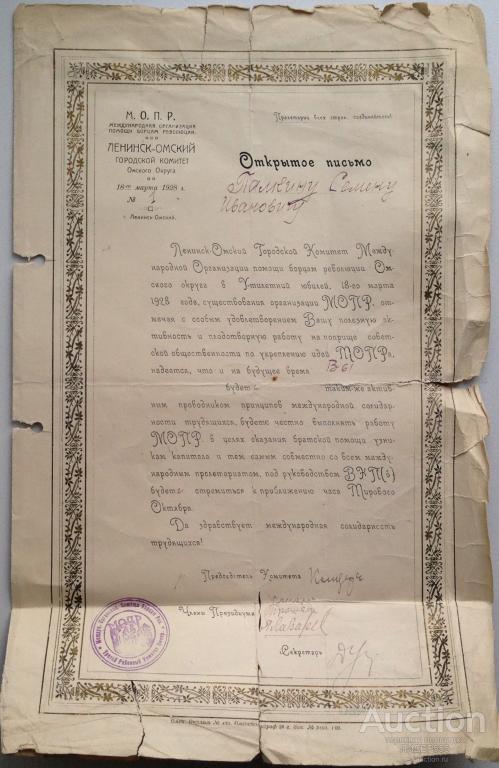 М. О. П. Р.
МЕЖДУНАРОДНАЯ ОРГАНИЗАЦИЯ
ПОМОЩИ БОРЦАМ РЕВОЛЮЦИИ.
ЛЕНИНСК-ОМСКИЙ
ГОРОДСКОЙ КОМИТЕТ
Омского Округа
18го марта 1928 г.
№ 1
г. Ленинск-Омский.
Пролетарии всех стран, соединяйтесь!
Открытое письмо
Палкину Семену
Ивановичу
Ленинск-Омский Городской Комитет Между
народной Организации помощи борцам революции Ом
ского округа в V-тилетний юбилей, 18-го марта
1928 года, существования организации МОПР, от
мечая с особым удовлетворением Вашу полезную ак
тивность и плодотворную работу на поприще совет
ской общественности по укреплению идей МОПРа,
надеется, что и на будущее время Вы
будете таким-же актив
ным проводником принципов международной солидар
ности трудящихся, будете честно выполнять работу
МОПР в целях оказания братской помощи узни
кам капитала и тем самым совместно со всем между
народным пролетариатом, под руководством ВКП(б)
будете стремиться к приближению часа Мирового
Октября.
Да здравствует международная солидарность
трудящихся!
Председатель Комитета
Члены Президиума
Секретарь
МОПР
Auction